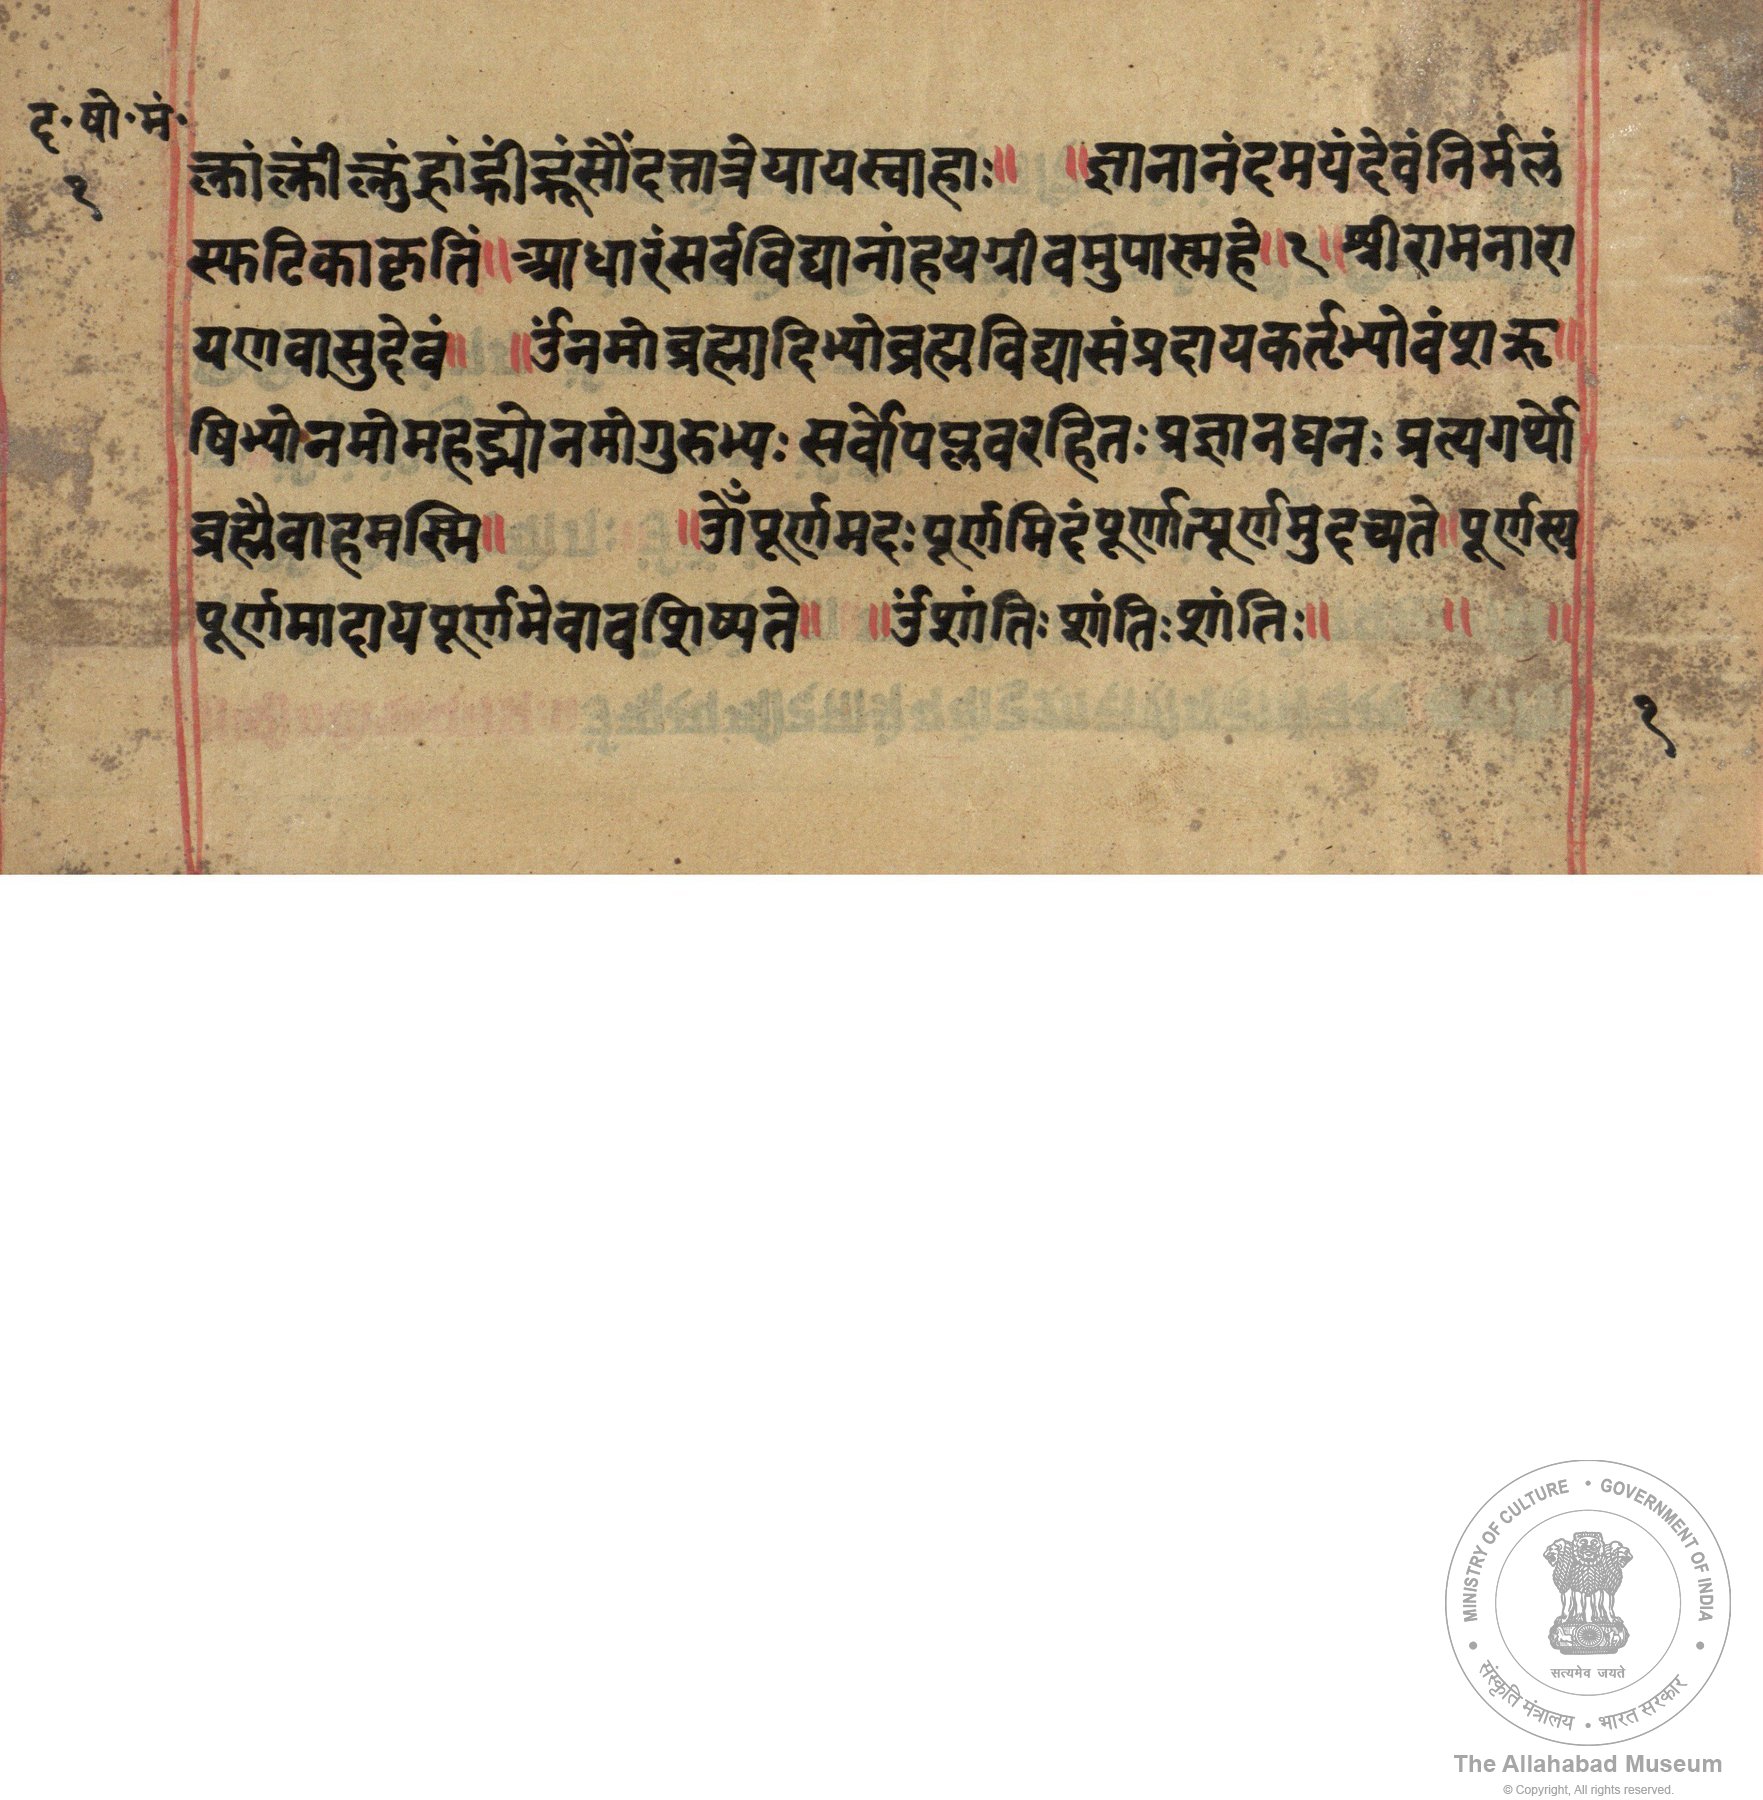 दृ·षो·मं·
१
क्लांक्लींक्लुंह्रांह्रींह्रूंसौंदत्तात्रेयायस्वाहाः॥ ॥ज्ञानानंदमयंदेवंनिर्मलं
स्फटिकाकृतिं॥आधारंसर्वविद्यानांहयग्रीवमुपास्महे॥१॥श्रीरामनारा
यणवासुदेवं॥ ॥ॐनमोब्रह्मादिभ्योब्रह्मविद्यासंप्रदायकर्तृभ्योवंशऋ॥
षिभ्योनमोमहद्भ्योनमोगुरुभ्यः सर्वोपप्लवरहितः प्रज्ञानघनः प्रत्यगर्थो
ब्रह्मैवाहमस्मि॥ ॥ॐपूर्णमदः पूर्णमिदंपूर्णात्पूर्णमुदच्यते॥पूर्णस्य
पूर्णमादायपूर्णमेवावशिष्यते॥ ॥ॐशांतिः शांतिः शांतिः॥ ॥ ॥
१
MINISTRY OF CULTURE • GOVERNMENT OF INDIA
सत्यमेव जयते
संस्कृति मंत्रालय • भारत सरकार
The Allahabad Museum
© Copyright, All rights reserved.